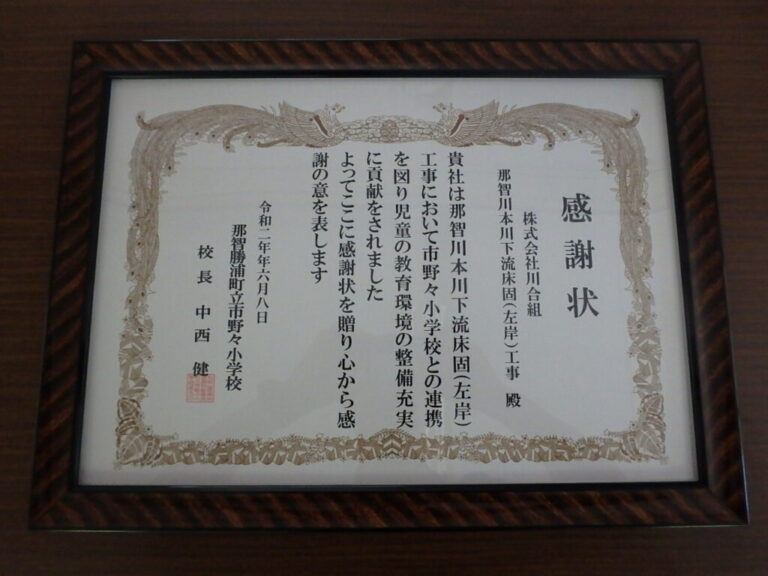 感謝状
株式会社川合組
那智川本川下流床固(左岸)工事 殿
貴社は那智川本川下流床固(左岸)
工事において市野々小学校との連携
を図り児童の教育環境の整備充実
に貢献をされました
よってここに感謝状を贈り心から感
謝の意を表します
令和二年年六月八日
那智勝浦町立市野々小学校
校長 中西 健